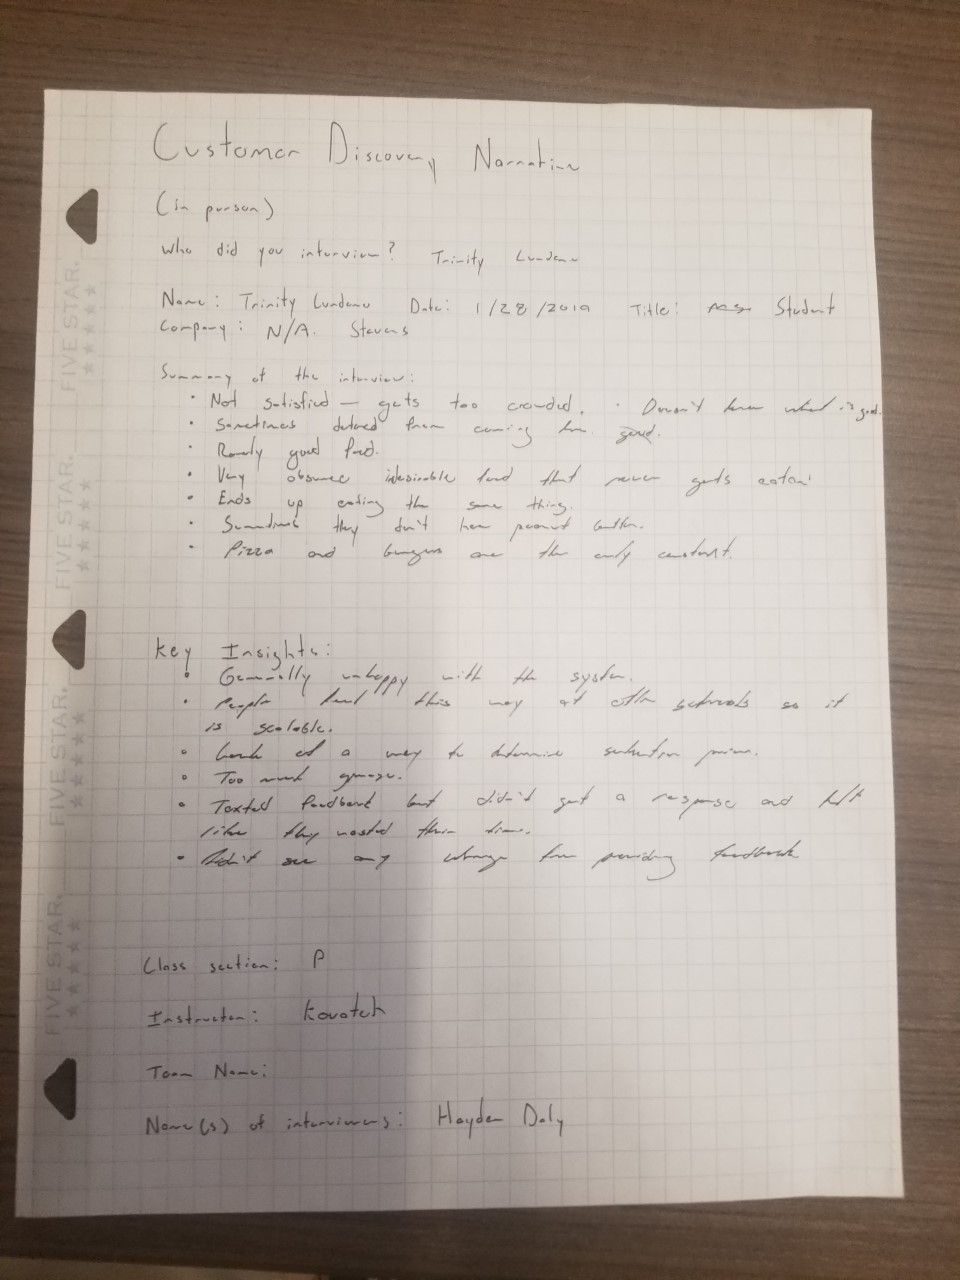 Customer Discovery Narrative
(in person)
Who did you interview? Trinity
Name: Trinity Date: 1/28/2019 Title: Student
Company: N/A. Stevens
Summary of the interview:
· Not satisfied – gets too crowded. · Doesn't know what is good.
· Sometimes detered from coming here.
· Rarely good food.
· Very obscure undesirable food that never gets eaten
· Ends up eating the same thing.
· Sometimes they don't have peanut butter.
· Pizza and burgers are the only constant.
Key Insights:
· Generally unhappy with the system.
· People feel this way at other schools so it
is scalable.
· a way to determine
· Too much grease.
· Texted feedback but didn't get a response and felt
like they wasted their time.
· Didn't see any change from providing feedback
Class section: P
Instructor: Kovatch
Team Name:
Name(s) of interviewers: Hayden Daly
FIVE STAR.
FIVE STAR.
FIVE STAR.
FIVE STAR.